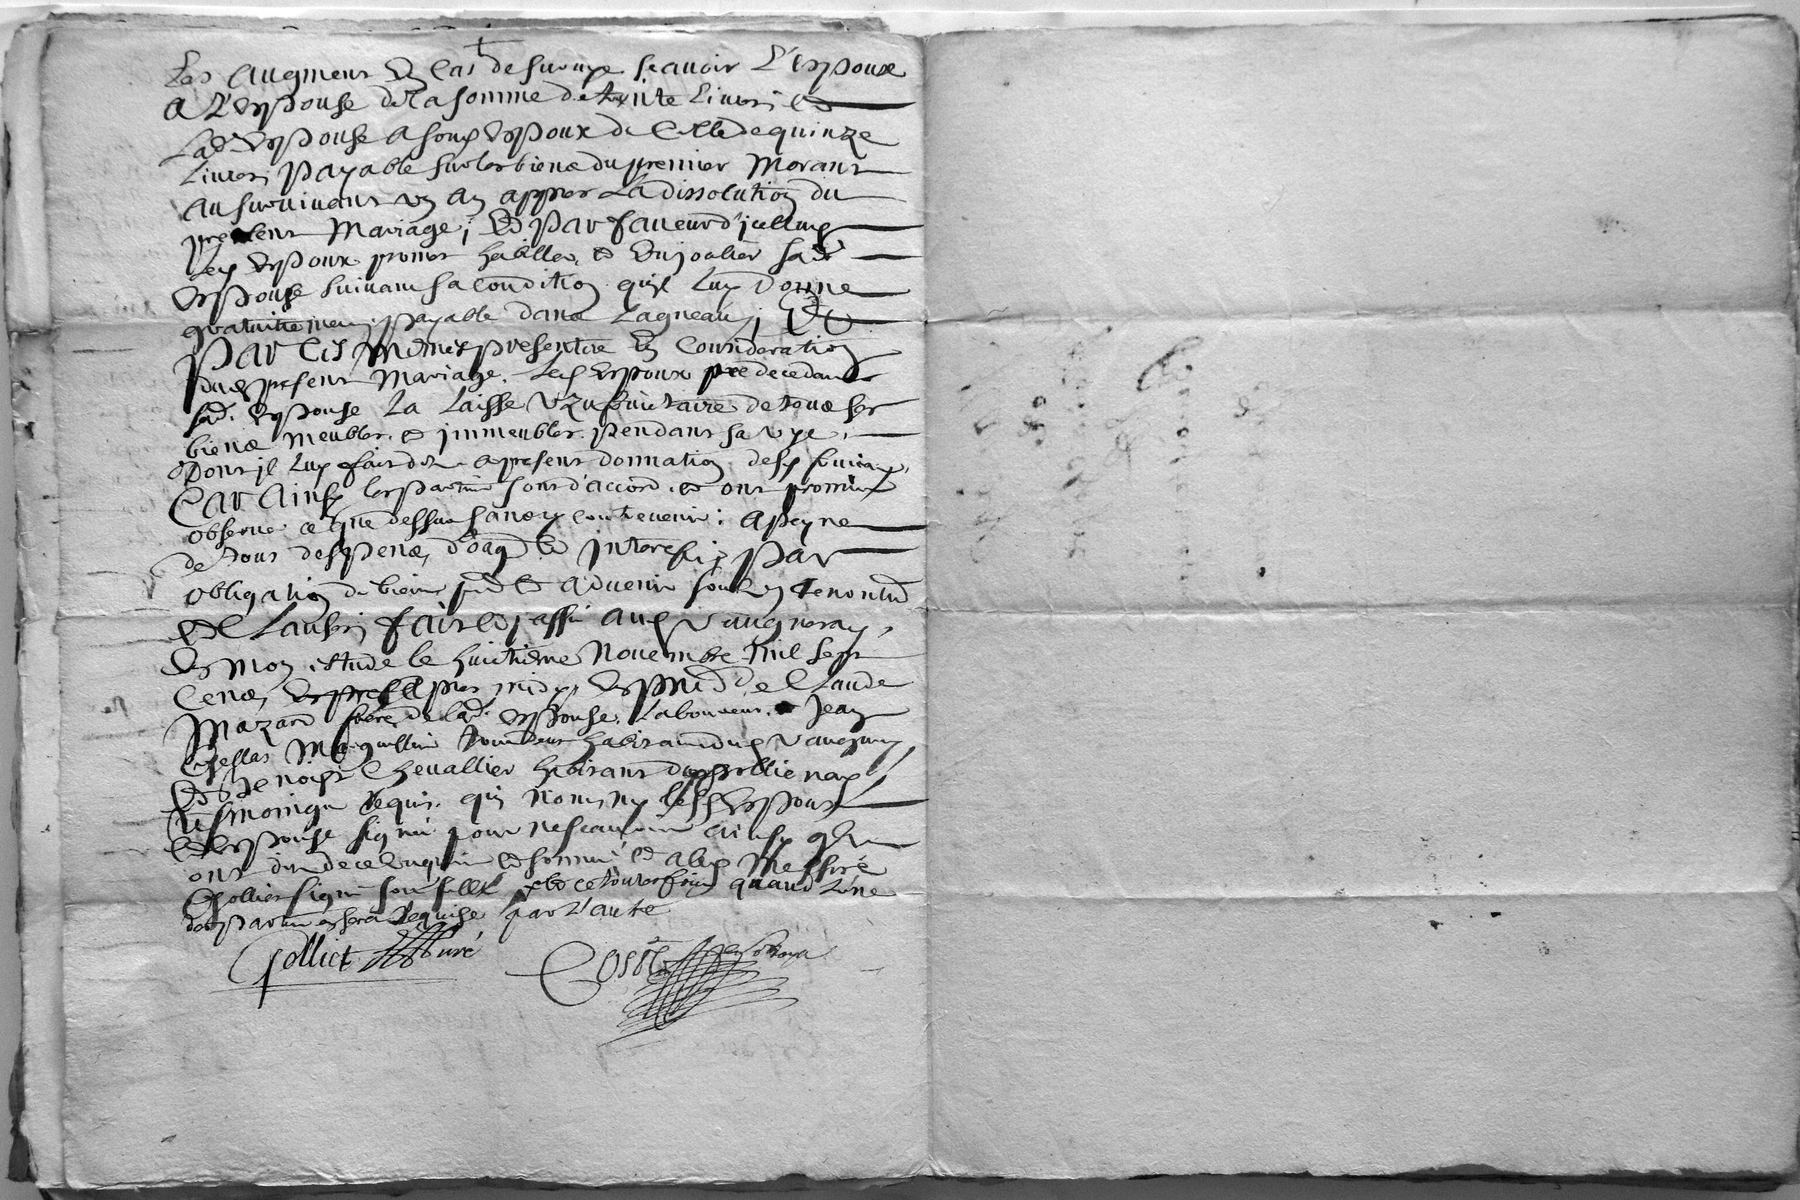 Les augment en cas de survye scavoir L'espoux
a L'espouse de la somme de trente Livres et
Lad. espouse a son espoux de Celle de quinze
Livres payable sur les biens du premier Morant
au survivant un an appres La dissolution du
present Mariage; Et par faveur d'icelluy
led espoux promet habiller et enjoaller sad.
espouse suivant sa condition qu'il Luy Donne
gratuitement payable dans Lagneau; Et
Par Ces Mesmes presentes en Consideration
dud present Mariage. Led espoux predecedant
sad. espouse La Laisse uzufruictaire de tous ses
biens meubles et immeubles pendant sa vye,
Dont il Luy fait des a present donnation
Car Ainsy les parties sont d'accord et ont promis
observer ce que dessus sans y contrevenir; a peyne
de tous despens, domag et interests; par
obligation de biens pnd et advenir
Et Clauses; fait et passé aud vaugneray,
en mon estude le huictiesme Novembre mil sept
Cens, apres midy, en pnce de Claude
Mazard frere de lad. espouse, Laboureur, et Jean
habitant dud vaugneray,
et Benoist Chevallier habitant de pollienay,
tesmoings requis, qui n'ont ny lesd espoux
et espouse signé pour ne scavoir ainsy qu'ils
ont dit de ce enquis et sommé et a led Messire
Jolliet signé
des parties en sera requise par L'autre
Jolliet Curé